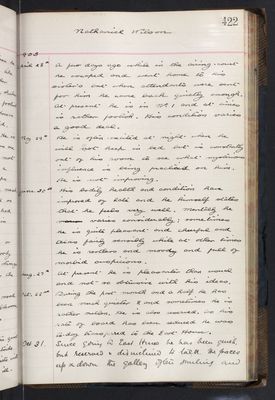 422
Nathaniel Wilson
1903
April 28th A few days ago while in the airing-court
he escaped and went home to his
sister's but when attendants were sent
for him he came back quietly enough.
At present he is in No 1 and at times
is rather foolish. His condition varies
a good deal.
May 29th He is often excited at night when he
will not keep in bed but is constantly
out of his room to see what mysterious
influence is being practised on him.
He is not improving.
June 30th His bodily health and condition have
improved of late and he himself states
that he feels very well. Mentally he
varies considerably; sometimes
he is quite pleasant and cheerful and
seems fairly sensible while at other times
he is restless and moody and full of
morbid suspicions.
Aug. 27th At present he is pleasanter than usual
and not so obtrusive with his ideas.
Oct. During the past month and a half he has
been much quieter and sometimes he is
rather solitary. He is also worried, as his
rate of board has been reduced he was
today transferred to the East House.
Oct 31. Since going to East House he has been quiet,
but reserved & disinclined to talk. He paces
up & down the gallery often smiling and